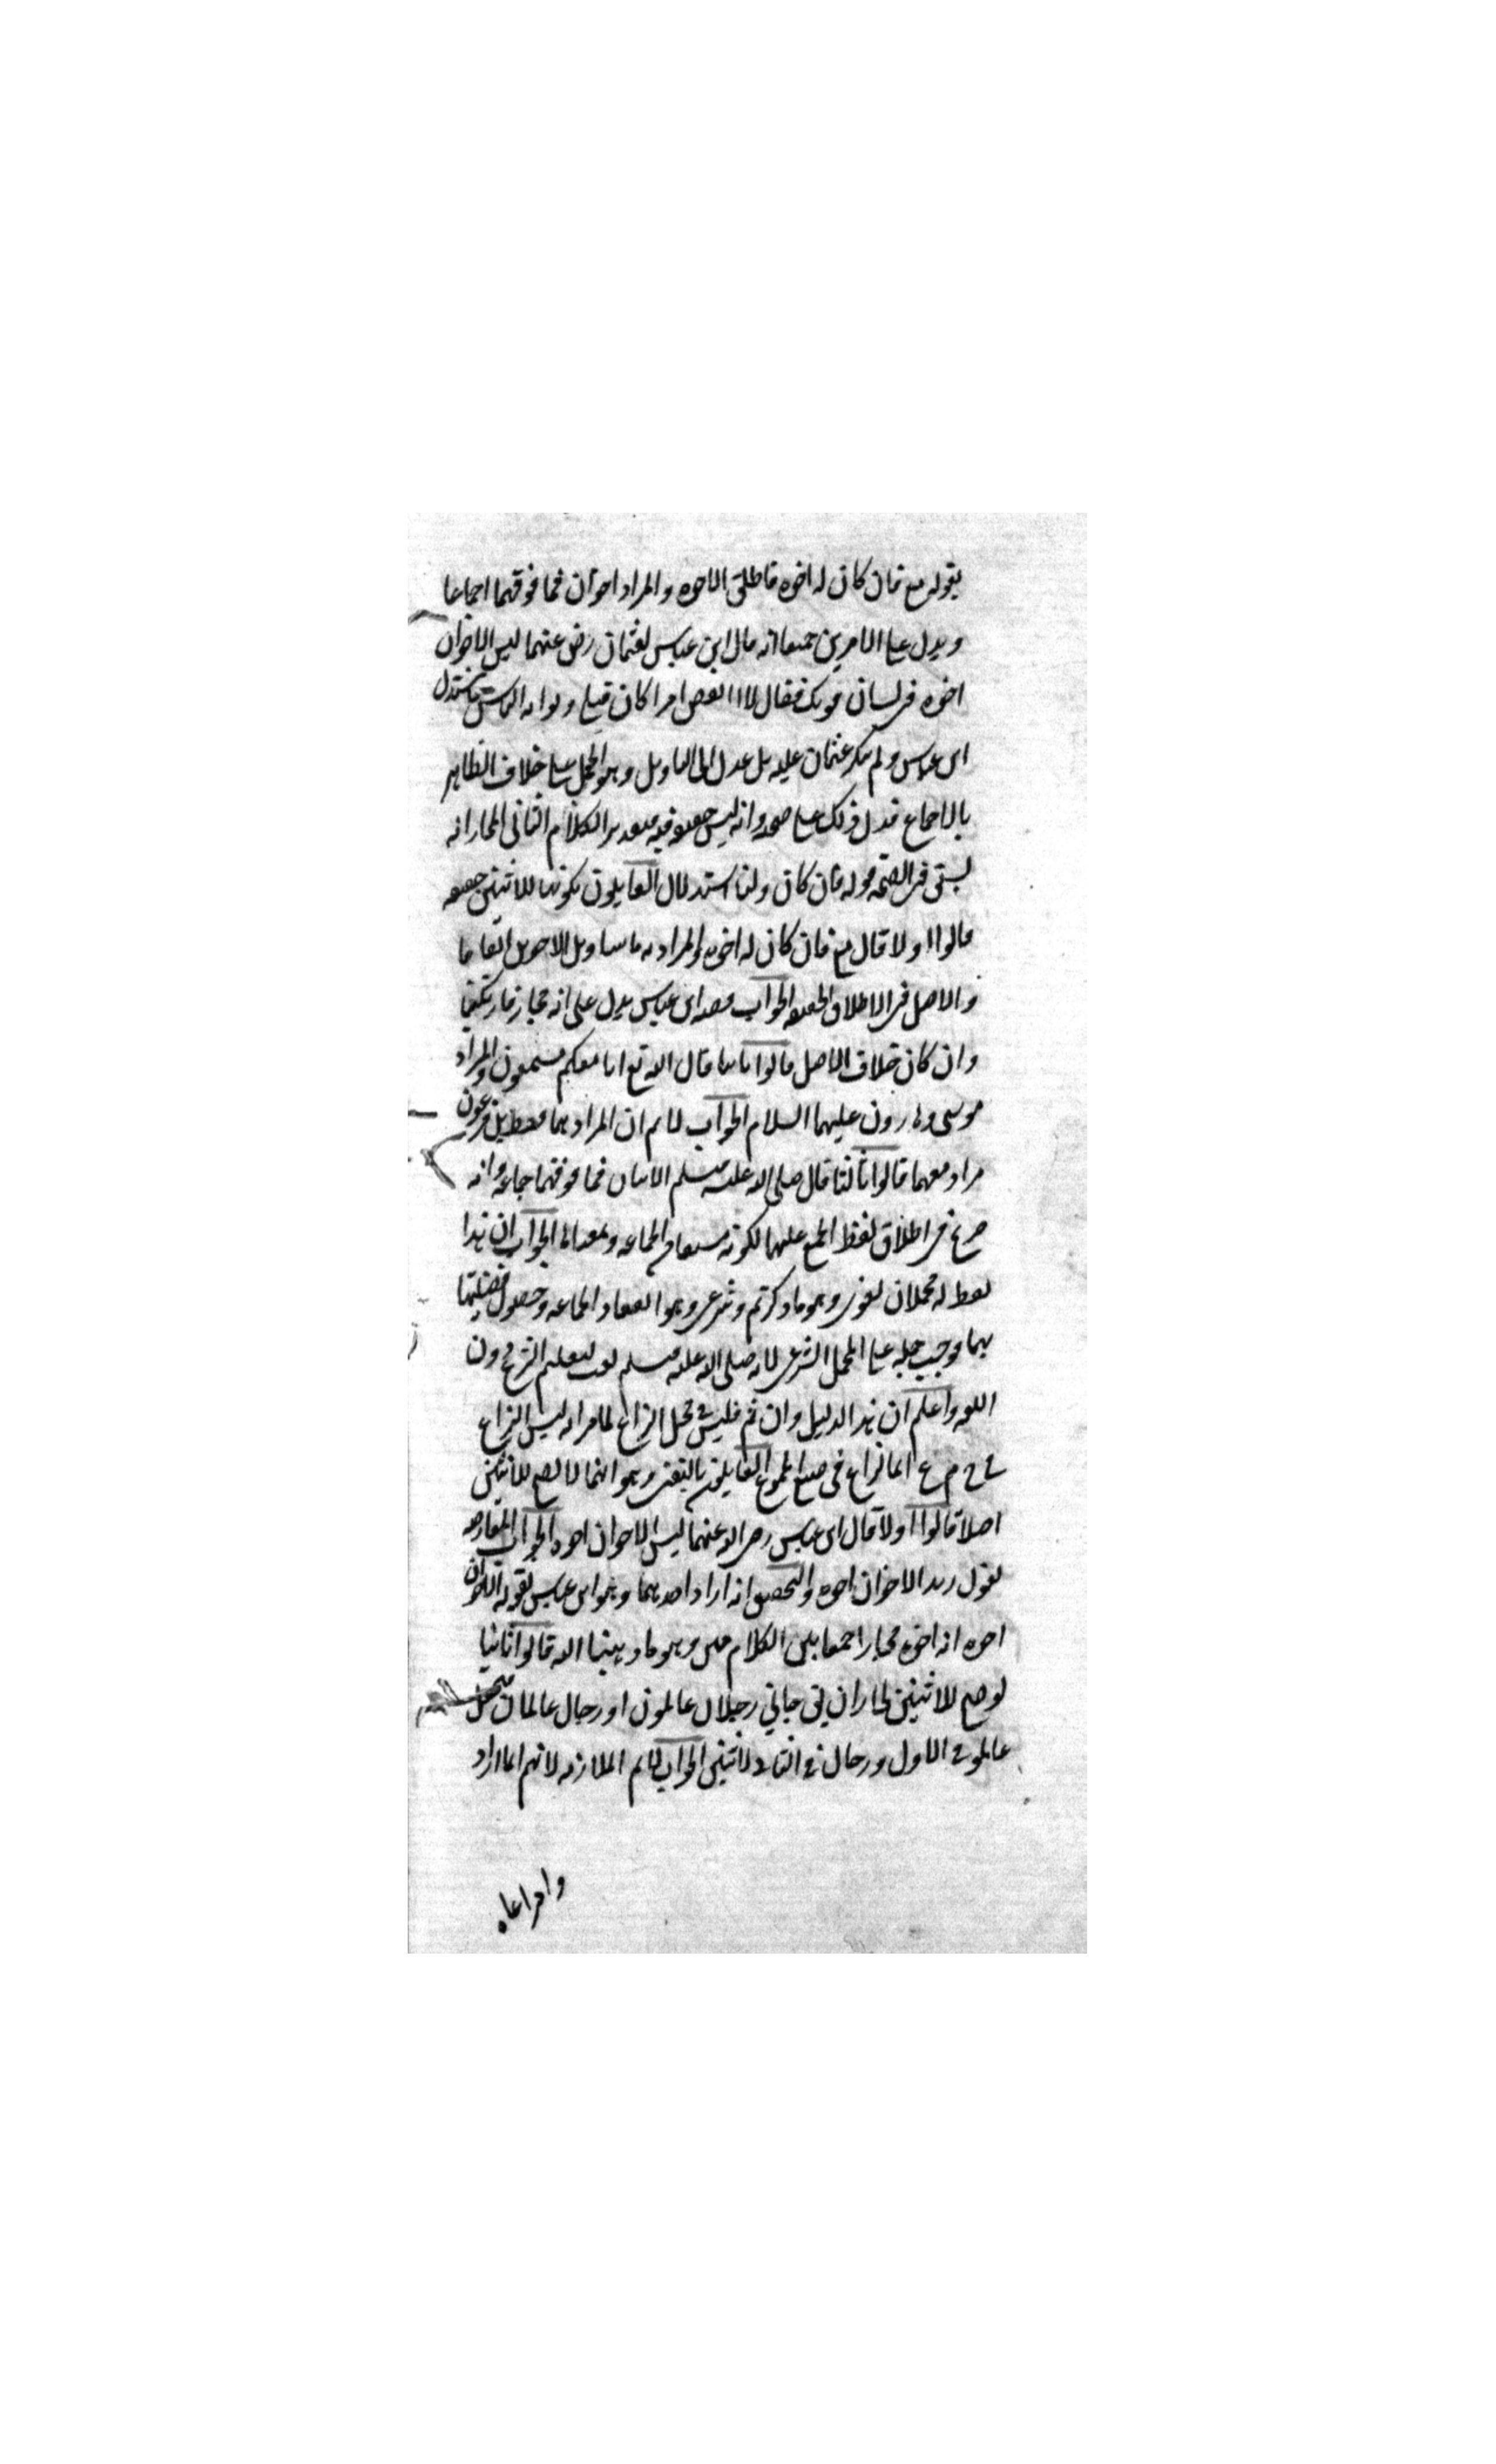 بقوله تع فان كان له اخوه فاطلق الاخوه والمراد اخوان فما فوقهما اجماعا
ويدل على الامرين جميعا انه قال ابن عباس لعثمان رضى عنهما ليس الاخوان
اخوه فى لسان قومك فقال لا انقض امرا كان قبلى وتوارثه الناس فاستدل
ابن عباس ولم ينكر عثمان عليه بل عدل الى التاويل وهو الحمل على خلاف الظاهر
بالاجماع فدل ذلك على صحه وانه ليس حقيقه فيه الكلام الثانى المجاز انه
قوله فان كان ولنا استدلال القايلون بكونها للاثنين حقيقه
قالوا اولا قال تع فان كان له اخوه والمراد به ما يتناول الاخوين اتفاقا
والاصل فى الاطلاق الحقيقه الجواب قصه ابن عباس يدل على انه مجاز فارتكبنا
وان كان خلاف الاصل قالوا ثانيا قال الله تع انا معكم مستمعون والمراد
موسى وهارون عليهما السلام الجواب لا نم ان المراد هما فقط بل فرعون
مراد معهما قالوا ثالثا قال صلى الله عليه وسلم الاثنان فما فوقهما جماعه وانه
صريح فى اطلاق لفظ الجمع عليهما لكونه الجماعه الجواب ان هذا
لفظ له محملان لغوى وهو ما ذكرتم وشرعى وهو انعقاد الجماعه وحصول فضيلتها
بهما فوجب حمله على المحمل الشرعى لانه صلى الله عليه وسلم بعث لتعليم الشرع دون
اللغه واعلم ان هذا الدليل وان تم فليس فى محل النزاع لما مر انه ليس النزاع
فى ج م ع انما النزاع فى صيغ الجموع القايلون بالنفى وهو انها لا تصح للاثنين
اصلا قالوا اولا قال ابن عباس رضى الله عنهما ليس الاخوان اخوه الجواب المعارضه
بقول زيد الاخوان اخوه والتحقيق انه اراد احدهما وهو ابن عباس بقوله الاخوان
اخوه انه اخوه مجازا جمعا بين الكلامين وهو ما ذهبنا اليه قالوا ثانيا
لو صح للاثنين لجاز ان يق جانى رجلان عالمون او رجال عالمان فيجعل
عالمون فى الاول ورجال فى الثانى لاثنين الجواب لا نم الملازمه لانهم انما اراد
وا مراعاه